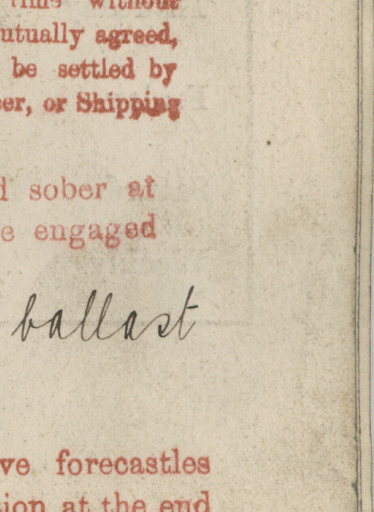 time without
utually agreed,
be settled by
er, or Shipping
d sober at
e engaged
ballast
ve forecastles
sion at the end